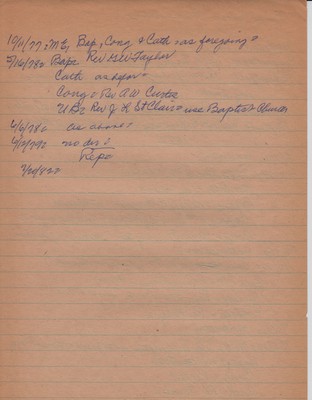 10/11/77: ME, Bap, Cong & Cath: as foregoing:
5/16/78: Bap: Rev G.W. Taylor
Cath as before
Cong: Rev A W Curtis
U B: Rev J K St Clair: use Baptist Church
4/6/78: as above:
4/2/79: no dis:
Repo
7/20/42: